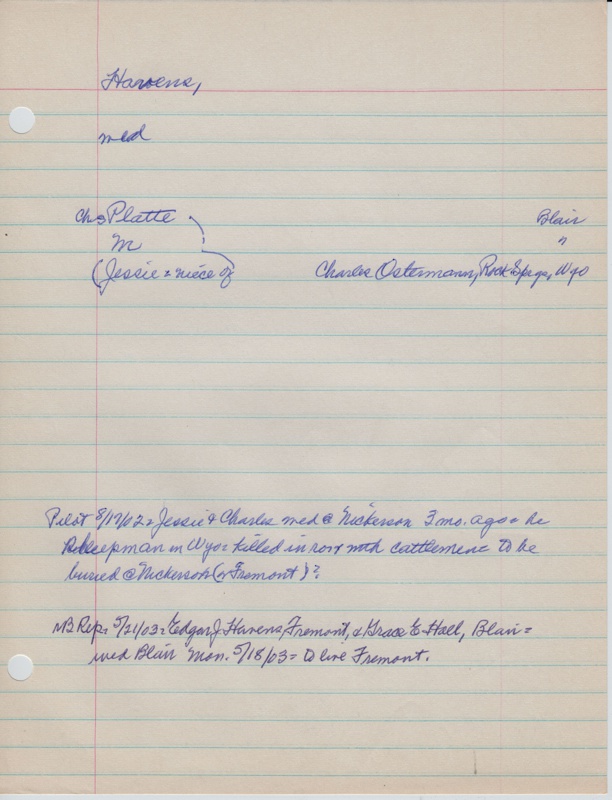 Havens,
med
ch= Platte
Blair
M
"
(Jessie = niece of Charles Ostermann, Rock Spgs, Wyo
Pilot 8/17/02 = Jessie & Charles med @ Nickerson 3 mo. ago = he
sheepman in Wyo = killed in row with cattlemen = to be
buried @ Nickerson (or Fremont)?
NB Rep. 5/21/03 = Edgar J. Havens, Fremont, & Grace E. Hall, Blair =
wed Blair Mon. 5/18/03 = to live Fremont.